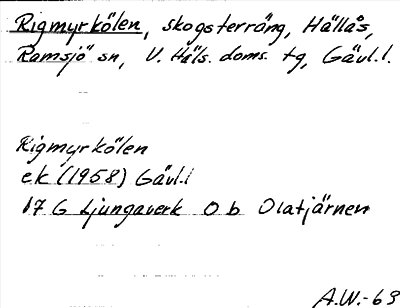 Rigmyrkölen, skogsterräng, Hällås,
Ramsjö sn, V. Häls. doms. tg, Gävl.l.
Rigmyrkölen
ek (1958) Gävl.l
17 G Ljungaverk 0 b Olatjärnen
A.W.-63